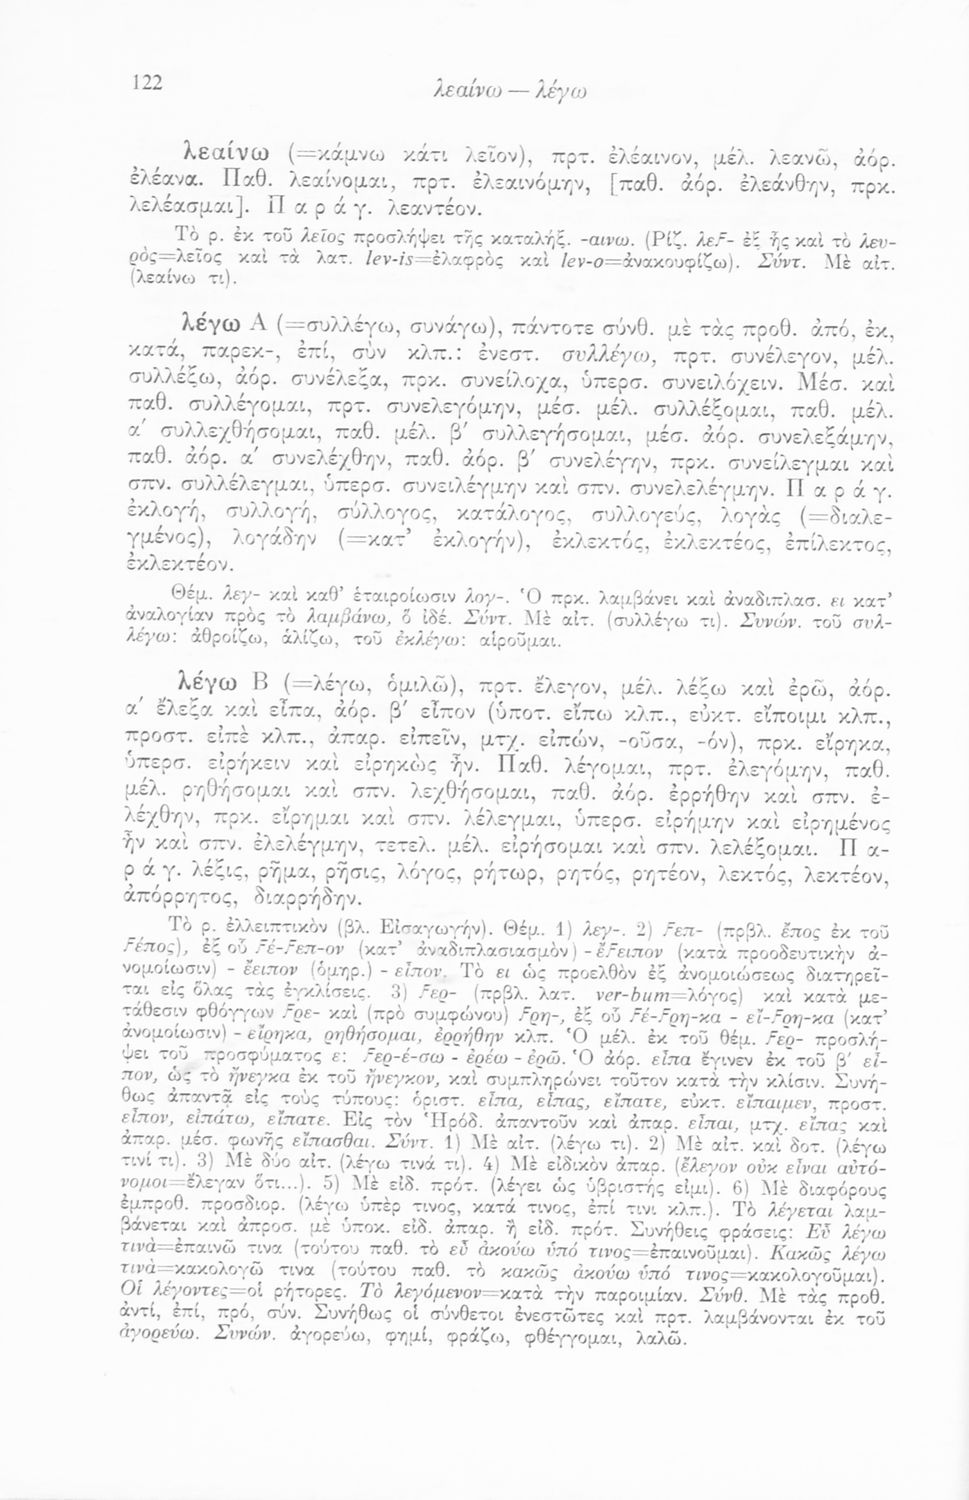 122
λεαίνω — λέγω
λεαίνω (=κάμνω κάτι λεῖον), πρτ. ἐλέαινον, μέλ. λεανῶ, ἀόρ.
ἐλέανα. Παθ. λεαίνομαι, πρτ. ἐλεαινόμην, [παθ. ἀόρ. ἐλεάνθην, πρκ.
λελέασμαι]. Π α ρ ά γ. λεαντέον.
Τὸ ρ. ἐκ τοῦ λεῖος προσλήψει τῆς καταλήξ. -αινω. (Ρίζ. λεϜ- ἐξ ἧς καὶ τὸ λευ-
ρὸς=λεῖος καὶ τὰ λατ. lev-is=ἐλαφρὸς καὶ lev-o=ἀνακουφίζω). Σύντ. Μὲ αἰτ.
(λεαίνω τι).
λέγω Α (=συλλέγω, συνάγω), πάντοτε σύνθ. μὲ τὰς προθ. ἀπό, ἐκ,
κατά, παρεκ-, ἐπί, σὺν κλπ.: ἐνεστ. συλλέγω, πρτ. συνέλεγον, μέλ.
συλλέξω, ἀόρ. συνέλεξα, πρκ. συνείλοχα, ὑπερσ. συνειλόχειν. Μέσ. καὶ
παθ. συλλέγομαι, πρτ. συνελεγόμην, μέσ. μέλ. συλλέξομαι, παθ. μέλ.
α΄ συλλεχθήσομαι, παθ. μέλ. β΄ συλλεγήσομαι, μέσ. ἀόρ. συνελεξάμην,
παθ. ἀόρ. α΄ συνελέχθην, παθ. ἀόρ. β΄ συνελέγην, πρκ. συνείλεγμαι καὶ
σπν. συλλέλεγμαι, ὑπερσ. συνειλέγμην καὶ σπν. συνελελέγμην. Π α ρ ά γ.
ἐκλογή, συλλογή, σύλλογος, κατάλογος, συλλογεύς, λογὰς (=διαλε-
γμένος), λογάδην (=κατ’ ἐκλογήν), ἐκλεκτός, ἐκλεκτέος, ἐπίλεκτος,
ἐκλεκτέον.
Θέμ. λεγ- καὶ καθ’ ἑταιροίωσιν λογ-. Ὁ πρκ. λαμβάνει καὶ ἀναδιπλασ. ει κατ’
ἀναλογίαν πρὸς τὸ λαμβάνω, ὃ ἰδέ. Σύντ. Μὲ αἰτ. (συλλέγω τι). Συνών. τοῦ συλ-
λέγω: ἀθροίζω, ἁλίζω, τοῦ ἐκλέγω: αἱροῦμαι.
λέγω Β (=λέγω, ὁμιλῶ), πρτ. ἔλεγον, μέλ. λέξω καὶ ἐρῶ, ἀόρ.
α΄ ἔλεξα καὶ εἶπα, ἀόρ. β΄ εἶπον (ὑποτ. εἴπω κλπ., εὐκτ. εἴποιμι κλπ.,
προστ. εἰπὲ κλπ., ἀπαρ. εἰπεῖν, μτχ. εἰπών, -οῦσα, -όν), πρκ. εἴρηκα,
ὑπερσ. εἰρήκειν καὶ εἰρηκὼς ἦν. Παθ. λέγομαι, πρτ. ἐλεγόμην, παθ.
μέλ. ρηθήσομαι καὶ σπν. λεχθήσομαι, παθ. ἀόρ. ἐρρήθην καὶ σπν. ἐ-
λέχθην, πρκ. εἴρημαι καὶ σπν. λέλεγμαι, ὑπερσ. εἰρήμην καὶ εἰρημένος
ἦν καὶ σπν. ἐλελέγμην, τετελ. μέλ. εἰρήσομαι καὶ σπν. λελέξομαι. Π α-
ρ ά γ. λέξις, ρῆμα, ρῆσις, λόγος, ρήτωρ, ρητός, ρητέον, λεκτός, λεκτέον,
ἀπόρρητος, διαρρήδην.
Τὸ ρ. ἐλλειπτικὸν (βλ. Εἰσαγωγήν). Θέμ. 1) λεγ-. 2) Ϝεπ- (πρβλ. ἔπος ἐκ τοῦ
Ϝέπος), ἐξ οὗ Ϝέ-Ϝεπ-ον (κατ’ ἀναδιπλασιασμὸν) - ἔϜειπον (κατὰ προοδευτικὴν ἀ-
νομοίωσιν) - ἔειπον (ὁμηρ.) - εἶπον. Τὸ ει ὡς προελθὸν ἐξ ἀνομοιώσεως διατηρεῖ-
ται εἰς ὅλας τὰς ἐγκλίσεις. 3) Ϝερ- (πρβλ. λατ. ver-bum=λόγος) καὶ κατὰ με-
τάθεσιν φθόγγων Ϝρε- καὶ (πρὸ συμφώνου) Ϝρη-, ἐξ οὗ Ϝέ-Ϝρη-κα - εἴ-Ϝρη-κα (κατ’
ἀνομοίωσιν) - εἴρηκα, ρηθήσομαι, ἐρρήθην κλπ. Ὁ μέλ. ἐκ τοῦ θέμ. Ϝερ- προσλή-
ψει τοῦ προσφύματος ε: Ϝερ-έ-σω - ἐρέω - ἐρῶ. Ὁ ἀόρ. εἶπα ἔγινεν ἐκ τοῦ β΄ εἶ-
πον, ὡς τὸ ἤνεγκα ἐκ τοῦ ἤνεγκον, καὶ συμπληρώνει τοῦτον κατὰ τὴν κλίσιν. Συνή-
θως ἀπαντᾷ εἰς τοὺς τύπους: ὁριστ. εἶπα, εἶπας, εἴπατε, εὐκτ. εἴπαιμεν, προστ.
εἶπον, εἰπάτω, εἴπατε. Εἰς τὸν Ἡρόδ. ἀπαντοῦν καὶ ἀπαρ. εἶπαι, μτχ. εἴπας καὶ
ἀπαρ. μέσ. φωνῆς εἴπασθαι. Σύντ. 1) Μὲ αἰτ. (λέγω τι). 2) Μὲ αἰτ. καὶ δοτ. (λέγω
τινί τι). 3) Μὲ δύο αἰτ. (λέγω τινά τι). 4) Μὲ εἰδικὸν ἀπαρ. (ἔλεγον οὐκ εἶναι αὐτό-
νομοι=ἔλεγαν ὅτι...). 5) Μὲ εἰδ. πρότ. (λέγει ὡς ὑβριστής εἰμι). 6) Μὲ διαφόρους
ἐμπροθ. προσδιορ. (λέγω ὑπὲρ τινος, κατά τινος, ἐπί τινι κλπ.). Τὸ λέγεται λαμ-
βάνεται καὶ ἀπροσ. μὲ ὑποκ. εἰδ. ἀπαρ. ἢ εἰδ. πρότ. Συνήθεις φράσεις: Εὖ λέγω
τινὰ=ἐπαινῶ τινα (τούτου παθ. τὸ εὖ ἀκούω ὑπό τινος=ἐπαινοῦμαι). Κακῶς λέγω
τινὰ=κακολογῶ τινα (τούτου παθ. τὸ κακῶς ἀκούω ὑπό τινος=κακολογοῦμαι).
Οἱ λέγοντες=οἱ ρήτορες. Τὸ λεγόμενον=κατὰ τὴν παροιμίαν. Σύνθ. Μὲ τὰς προθ.
ἀντί, ἐπί, πρό, σύν. Συνήθως οἱ σύνθετοι ἐνεστῶτες καὶ πρτ. λαμβάνονται ἐκ τοῦ
ἀγορεύω. Συνών. ἀγορεύω, φημί, φράζω, φθέγγομαι, λαλῶ.